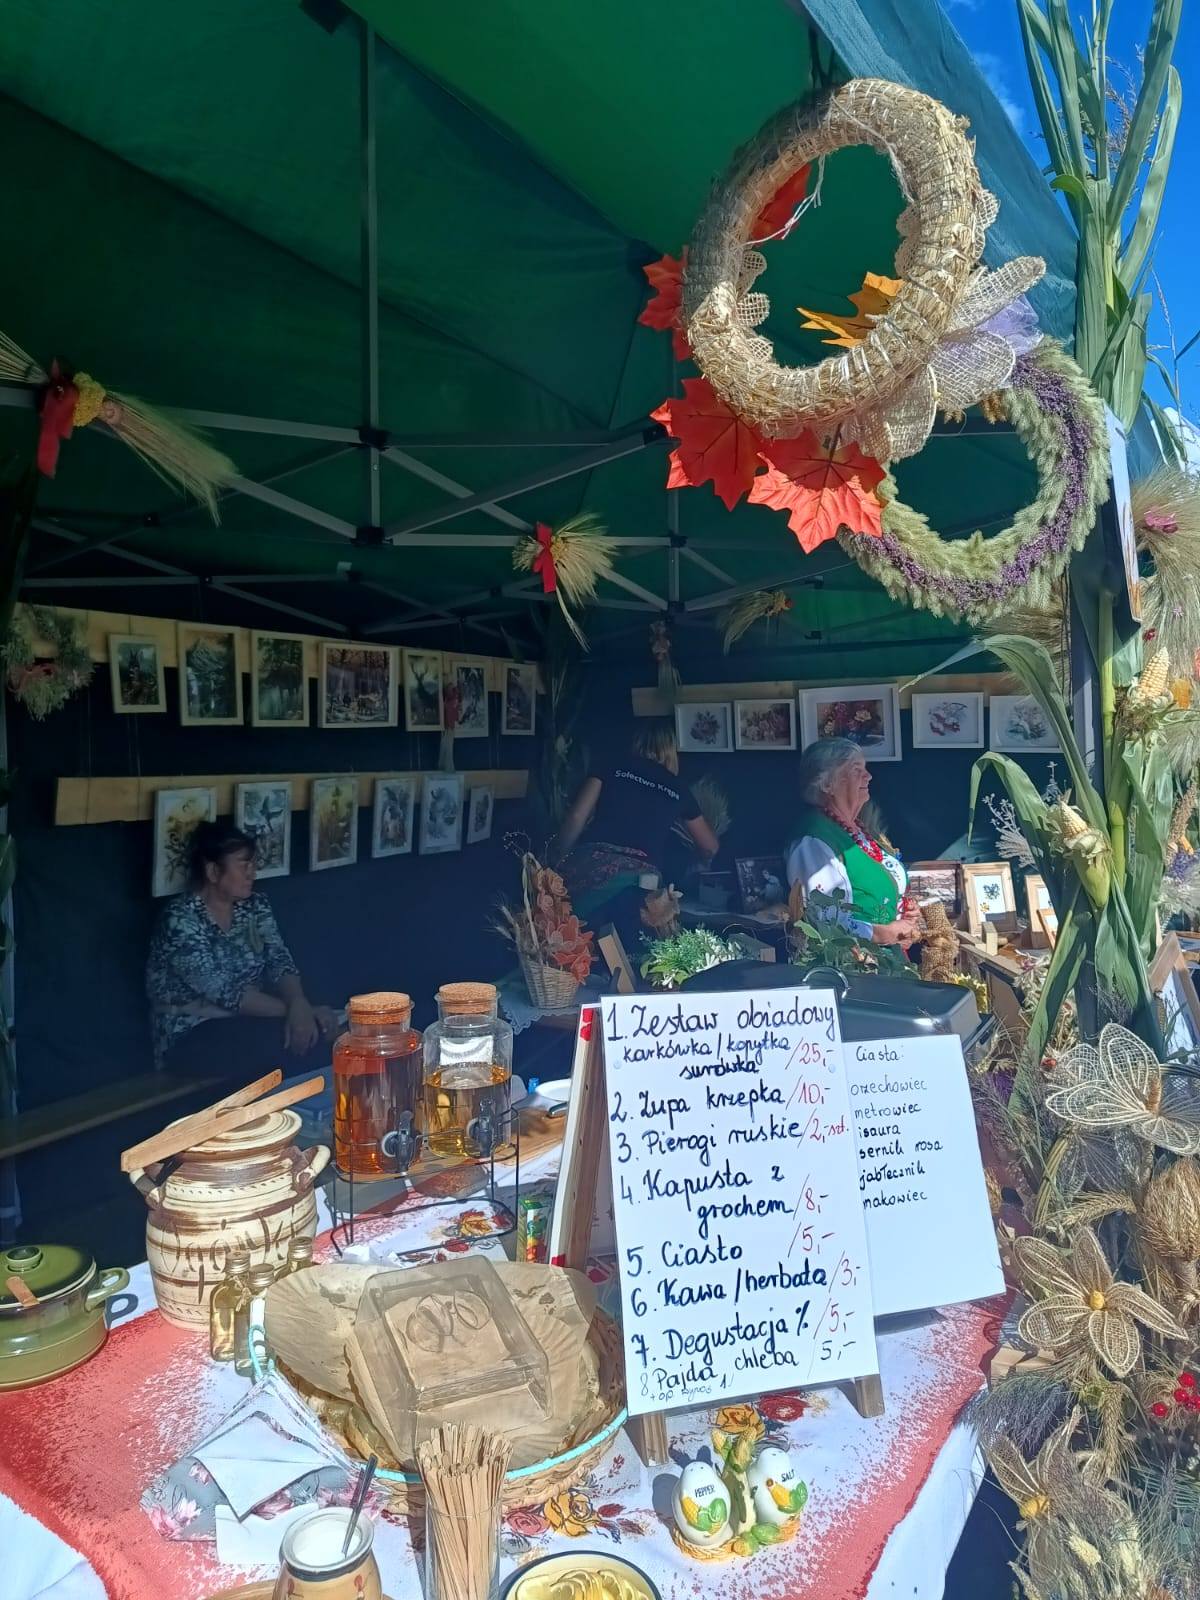 Sołectwo Krępa
1. Zestaw obiadowy
karkówka/kopytka /25,-
surówka
2. Zupa krzepka /10,-
3. Pierogi ruskie /2,-szt.
4. Kapusta z
grochem /8,-
5. Ciasto /5,-
6. Kawa/herbata /3,-
7. Degustacja % /5,-
8. Pajda chleba 5,-
Ciasta:
orzechowiec
metrowiec
isaura
sernik rosa
jabłecznik
makowiec
PEPPER
SALT